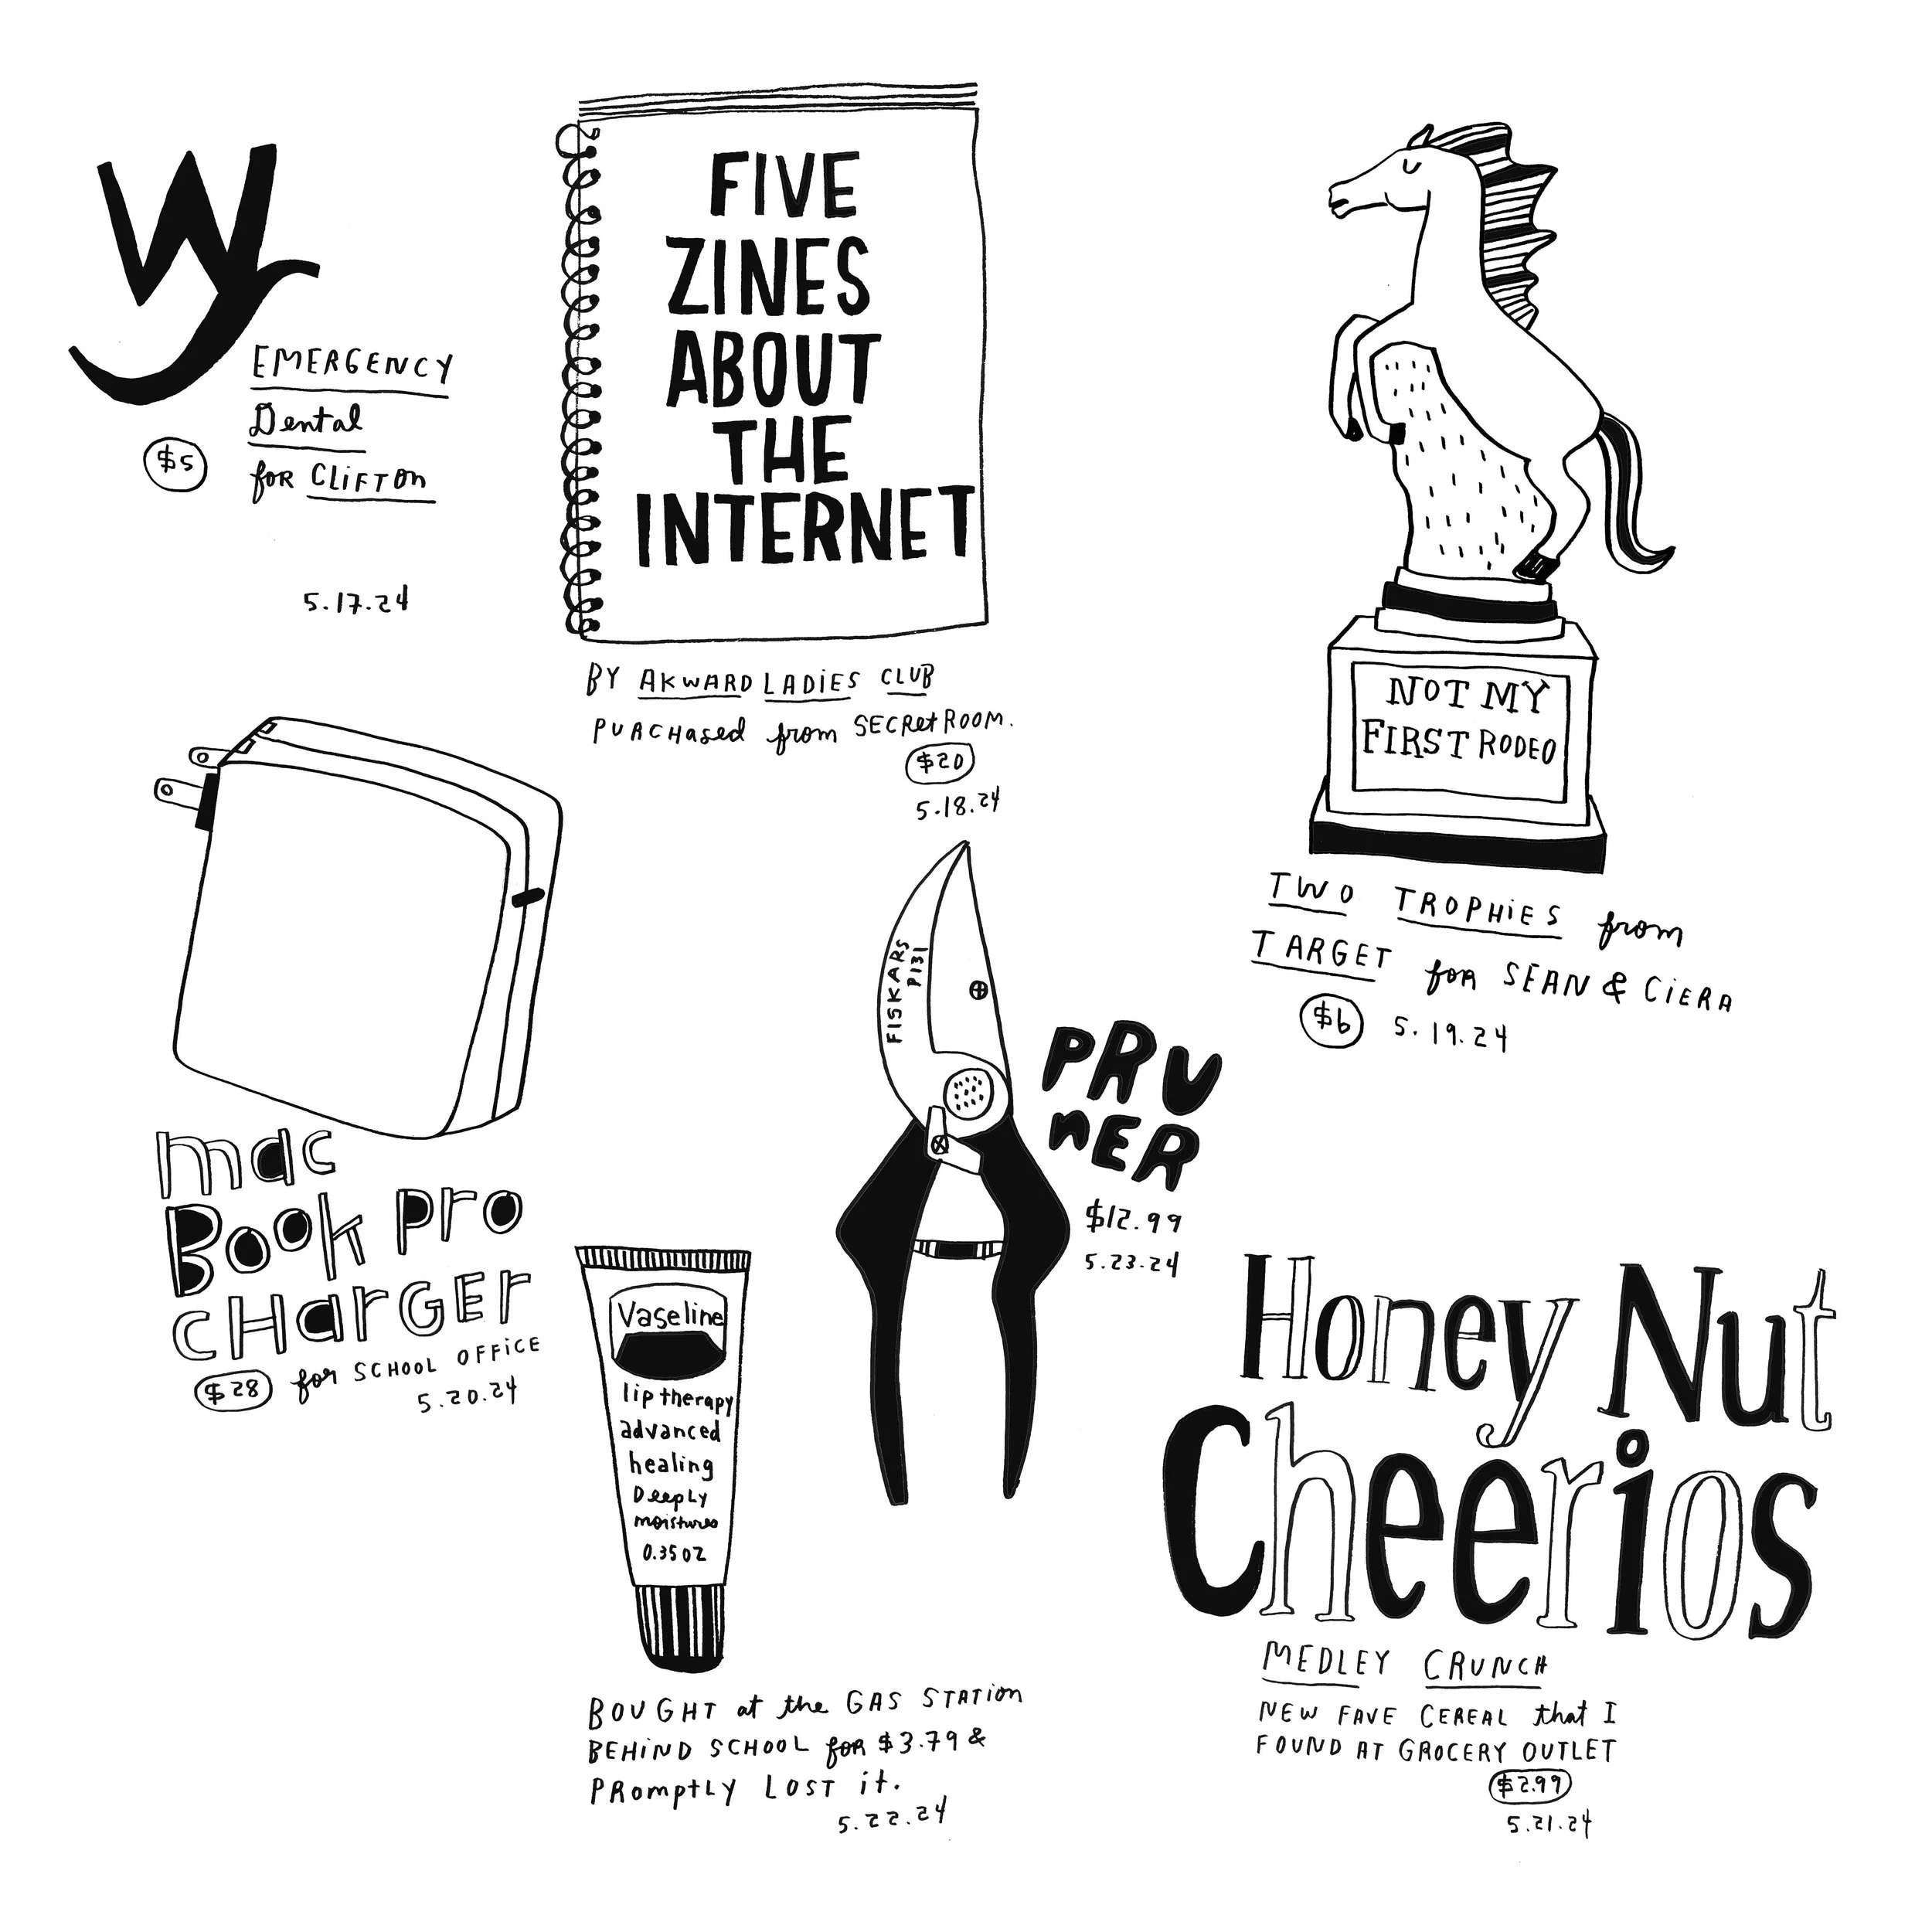 Wy
EMERGENCY
Dental
for CLiFTOn
$5
5.17.24
FIVE
ZINES
ABOUT
THE
INTERNET
BY AKWARD LADiES CLUB
PURCHased from SECRetROOM.
$20
5.18.24
NOT MY
FIRST RODEO
TWO TROPHiES from
TARGET for SEAN & CiERA
$6 5.19.24
mac
Book pro
cHarGEr
$28 for SCHOOL OFFiCE
5.20.24
FISKARS
P131
PRU
nER
$12.99
5.23.24
Vaseline
lip therapy
advanced
healing
DeepLy
moistures
0.35 OZ
BOUGHT at the GAS STATion
BEHiND SCHOOL foR $3.79 &
PRomptLy LOST it.
5.22.24
Honey Nut
Cheerios
MEDLEY CRUNCH
NEW FAVE CEREAL that I
FOUND AT GROCERY OUTLET
$2.99
5.21.24